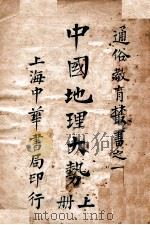 通俗教育叢書之一
中國地理大勢
上册
上海中華書局印行